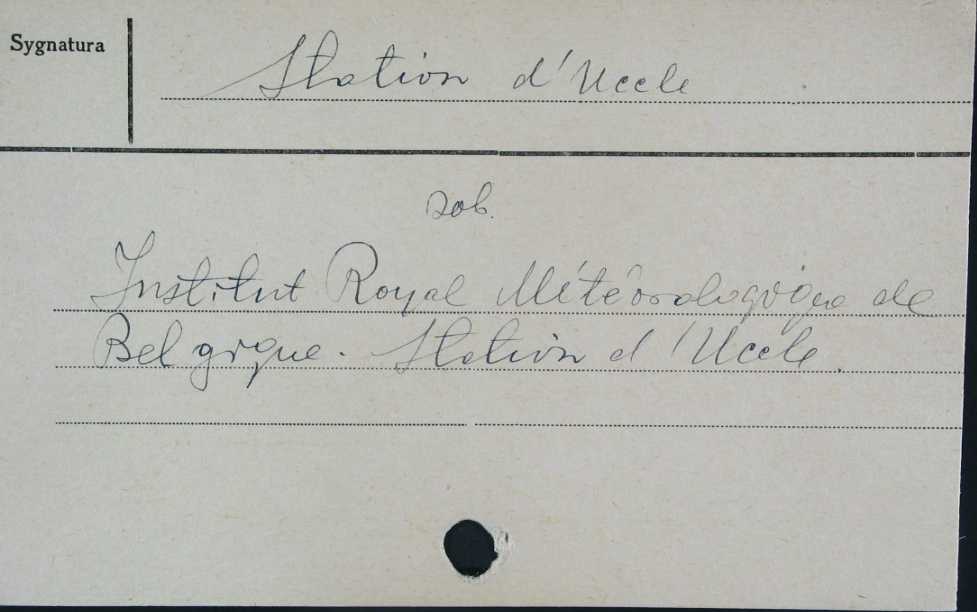 Sygnatura
Station d'Uccle
zob.
Institut Royal Météorologique de
Belgique. Station d'Uccle.